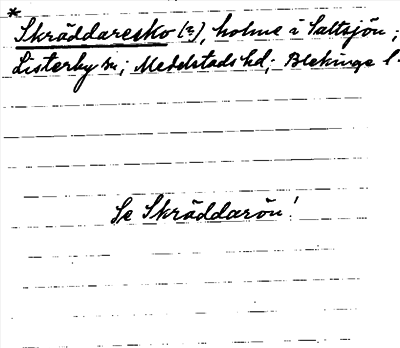 *
Skräddaresko (?), holme i Saltsjön;
Listerby sn; Medelstads hd; Blekinge l.
Se Skräddarön!